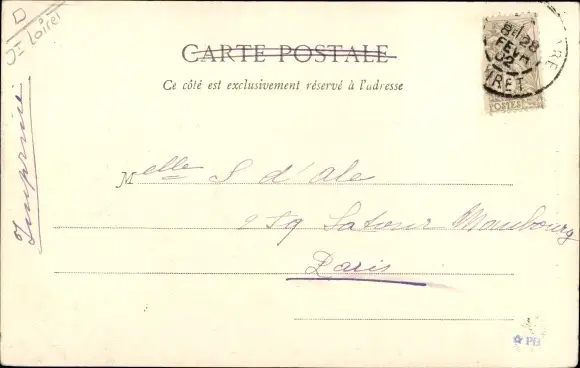 D
Loiret
CARTE POSTALE
Ce côté est exclusivement réservé à l'adresse
Imprimé
Melle S d'Ale
2 Sq Latour Maubourg
Paris
28
FEVR
02
IRET
POSTES
PB